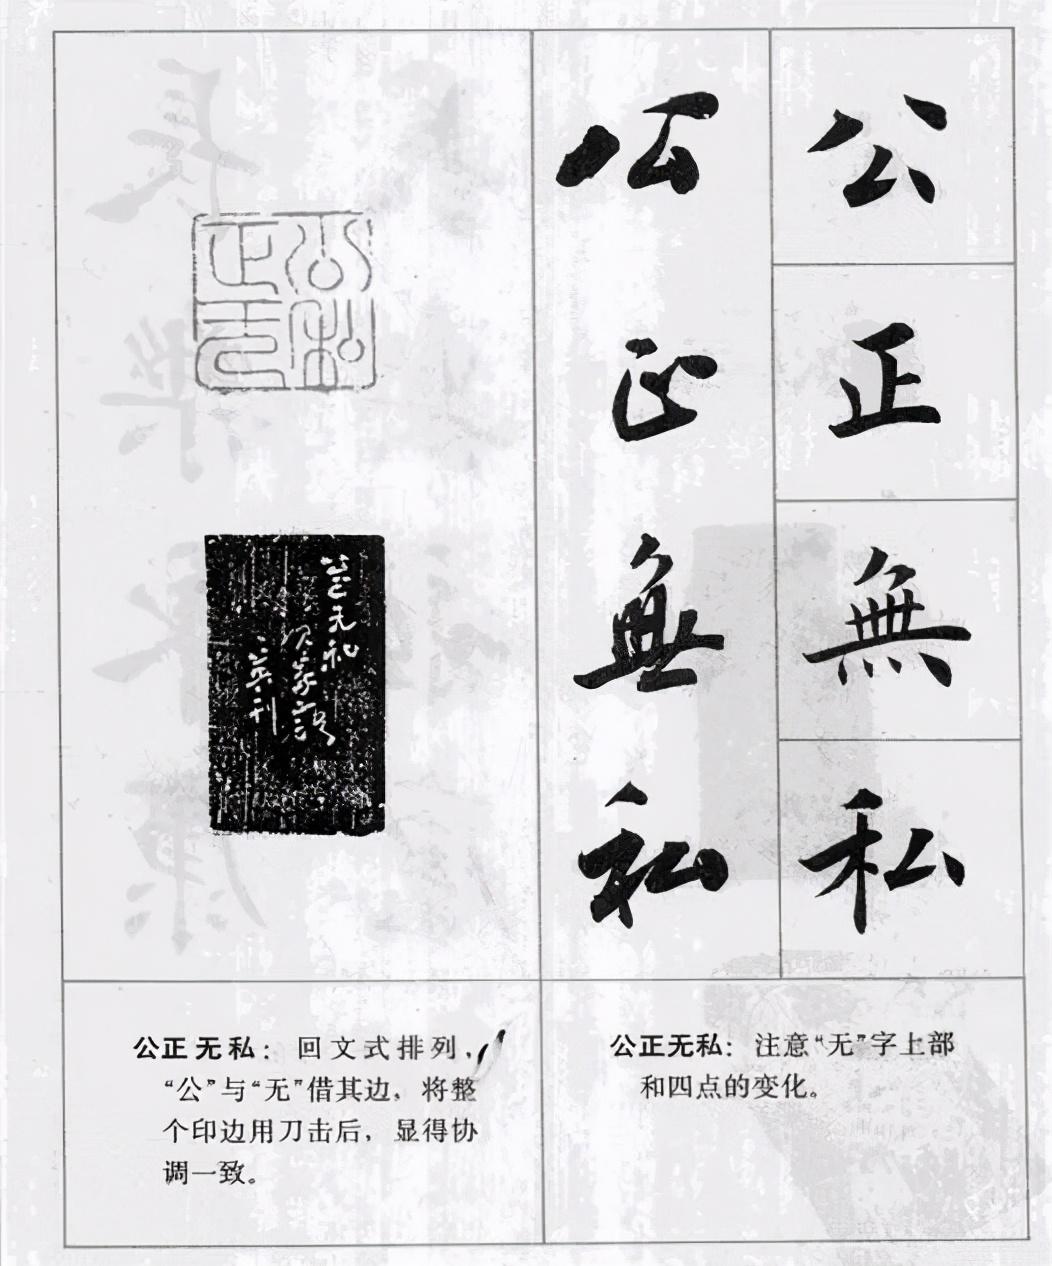 公正無私
公正無私
公正无私
公正无私
公正无私：注意“无”字上部
和四点的变化。
公正无私：回文式排列，
“公”与“无”借其边，将整
个印边用刀击后，显得协
调一致。